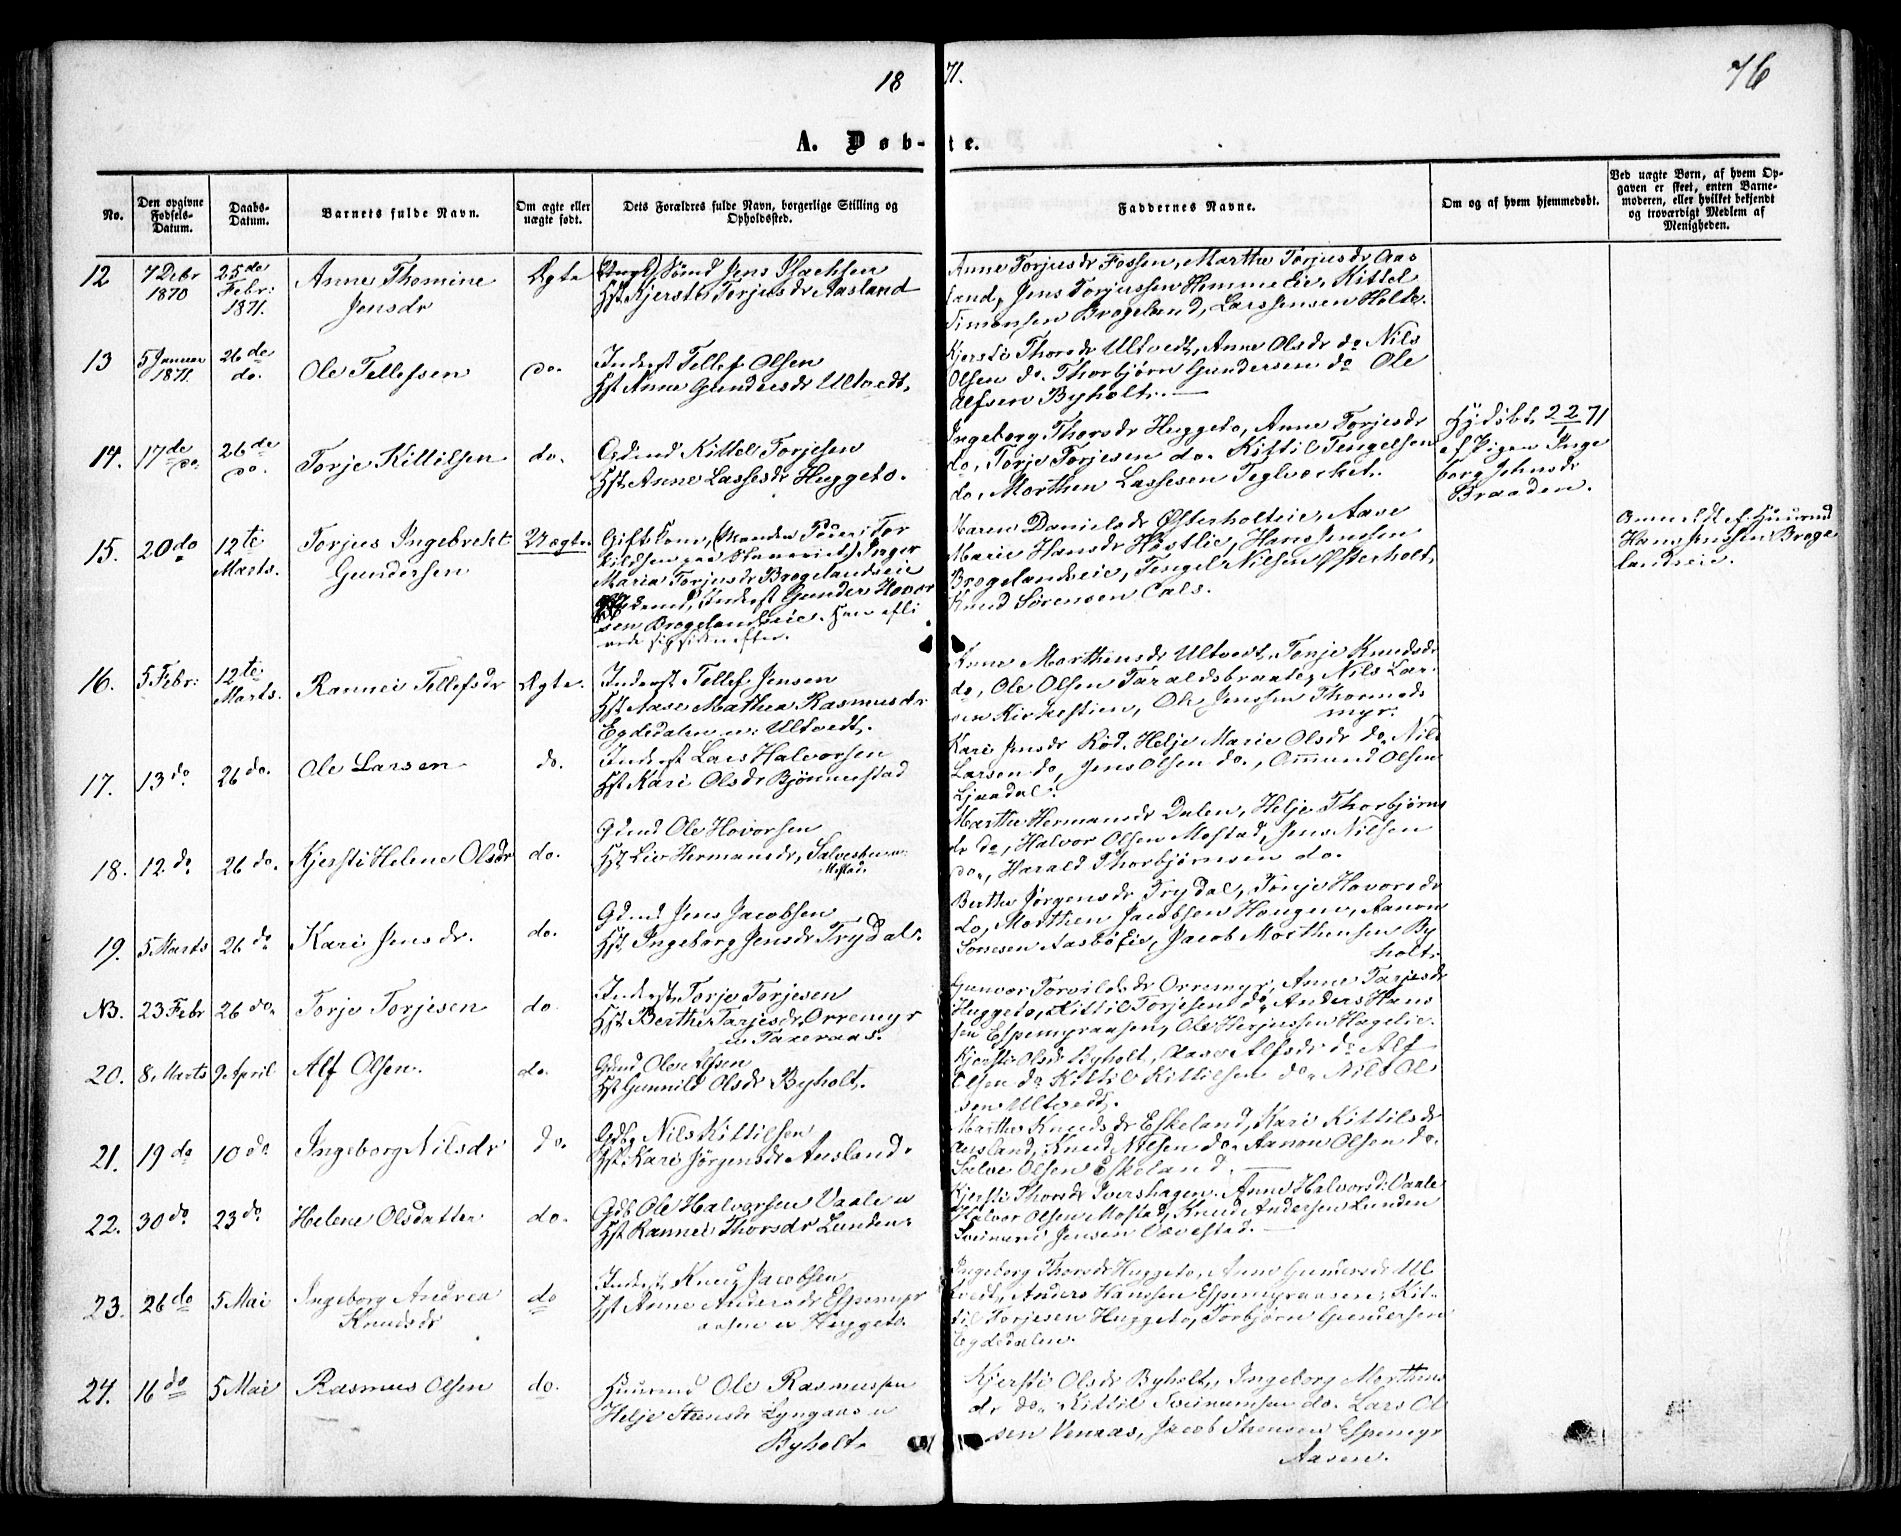 18 71.
76
A. Døb-te.
No.
Den opgivne Fødsels-Datum.
Daabs-Datum.
Barnets fulde Navn.
Om ægte eller uægte født.
Dets Forældres fulde Navn, borgerlige Stilling og Opholdssted.
Faddernes Navne.
Om og af hvem hjemmedøbt.
Ved uægte Børn, af hvem Opgaven er skeet, enten Barnemoderen, eller hvilket bekjendt og troværdigt Medlem af Menigheden.
12 7 Debr 1870 25de Febr: 1871. Anne Thomine Jensdr Ægte
Jens Isachsen
Hst Kjersti Torjusdr Aasland
Anne Torjusdr Fossen, Marthe Torjusdr Aas
land, Jens Torjussen Hommelie, Kittel
Simonsen Brogeland, Lars Jensen Holte
13 5 Januar 1871. 26de do. Ole Tellefsen do.
Inderst Tellef Olsen
Hst Anne Gundersdr Ultvedt.
Kjersti Thorsdr Ultvedt, Anne Olsdr do Nils
Olsen do. Thorbjørn Gundersen do Ole
Alfsen Byholt.
14. 17de do. 26de do. Torje Kittilsen do.
Gdmd Kittel Torjesen
Hst Anne Lassesdr Huggeto.
Ingeborg Thorsdr Huggeto, Anne Torjesdr
do, Torje Torjesen do. Kittil Tengelsen
do, Morthen Lassesen Teglverket.
Hjdøbt 22 71
af Pigen Inge
borg Johnsdr
Braaden.
15. 20do 12te Marts. Torjus Ingebrekt Gundersen Uægte.
Gift Kone, (Manden
Inger
Maria Torjusdr Brogelandseie
Inderst Gunder Hover
sen Brogelandseie.
Maren Danielsdr Østerholteie, Aase
Marie Hansdr Høstlie, Hans Jensen
Brogelandseie, Tengel Nielsen Østerholt,
Knud Sørensen Cals.
Anmeldt af Huusmd
Hans Jenssen Broge
landseie.
16. 5 Febr: 12te Marts. Rannei Tellefsdr Ægte.
Inderst Tellef Jensen
Hst Aase Mathea Rasmusdr
Egdedalen u: Ultvedt.
Anne Morthensdr Ultvedt, Tonje Knudsdr
do, Ole Olsen Taraldsbraate, Nils Lar
sen Kirkestien, Ole Jenssen Thormods
myr.
17. 13do 26do. Ole Larsen do.
Inderst Lars Halvorsen
Hst Kari Olsdr Bjørnnestad
Kari Jensdr Rød, Helje Marie Olsdr do. Nils
Larsen do, Jens Olsen do., Ommund Olsen
Ljaadal.
18. 12.do 26do. Kjersti Helene Olsdr do.
Gdmd Ole Hovorsen
Hst Liv Hermansdr,
Mostad
Marthe Hermansdr Dalen, Helje Thorbjørns
dr do, Halvor Olsen Mostad, Jens Nilsen
do., Harald Thorbjørnsen do.
19. 5 Marts 26do Kari Jensdr. do.
Gdmd Jens Jacobsen
Hst. Ingeborg Jensdr Trydal.
Berthe Jørgensdr Trydal, Tonje Havorsdr
do, Morthen Jacobsen Haugen, Aanon
Sonesen Aasbøeie, Jacob Morthensen By
holt.
NB. 23 Febr 26do. Torje Torjesen do
Inderst Torje Torjesen
Hst Berthe Tarjesdr Orremyr
u: Taxeraas.
Gunvor Torvildsdr Orremyr, Anne Tarjesdr
Huggeto, Kittil Torjesen do, Anders Hans
sen Espemyraasen, Ole Herjussen Hagelie.
20. 8 Marts 9 April Alf Olsen. do.
Gmd Ole Alfsen
Hst Gunnild Olsdr Byholt.
Kjersti Olsdr Byholt, Aase Alfsdr do Alf
Olsen do Kittil Kittilsen do. Nils Ol
sen Ultvedt.
21. 19 do 10 do Ingeborg Nilsdr do.
Gdbg Nils Kittilsen
Hst Kari Jørgensdr Ausland.
Marthe Knudsdr Eskeland, Kari Kittilsdr
Ausland, Knud Nilsen do. Aanon Olsen do.
Salve Olsen Eskeland.
22. 30do 23do. Helene Olsdatter do.
Gdb Ole Halvorsen Vaale u
Hst Rannei Thorsdr Lunden.
Kjersti Thorsdr Ivershagen. Anne Halvorsd: Vaale
Halvor Olsen Mostad, Knud Andersen Lunden
Jensen Vævestad.
23. 26do 5 Mai Ingeborg Andrea Knudsdr do
Inderst Knud Jacobsen
Hst Anne Andersdr Espemyr
aasen u Huggeto.
Ingeborg Thorsdr Huggeto, Anne Gundersdr Ul
tvedt, Anders Hanssen Espemyraasen, Kit
til Torjesen Huggeto, Torbjørn Gundersen
Egdedalen.
24. 16do 5 Mai Rasmus Olsen do.
Huusmd Ole Rasmussen
Helje Steensdr Lyngaas u
Byholt
Kjersti Olsdr Byholt, Ingeborg Morthens
dr do. Kittil do. Lars Ol
sen Venaas, Jacob Thomsen Espemyr
Aasen.